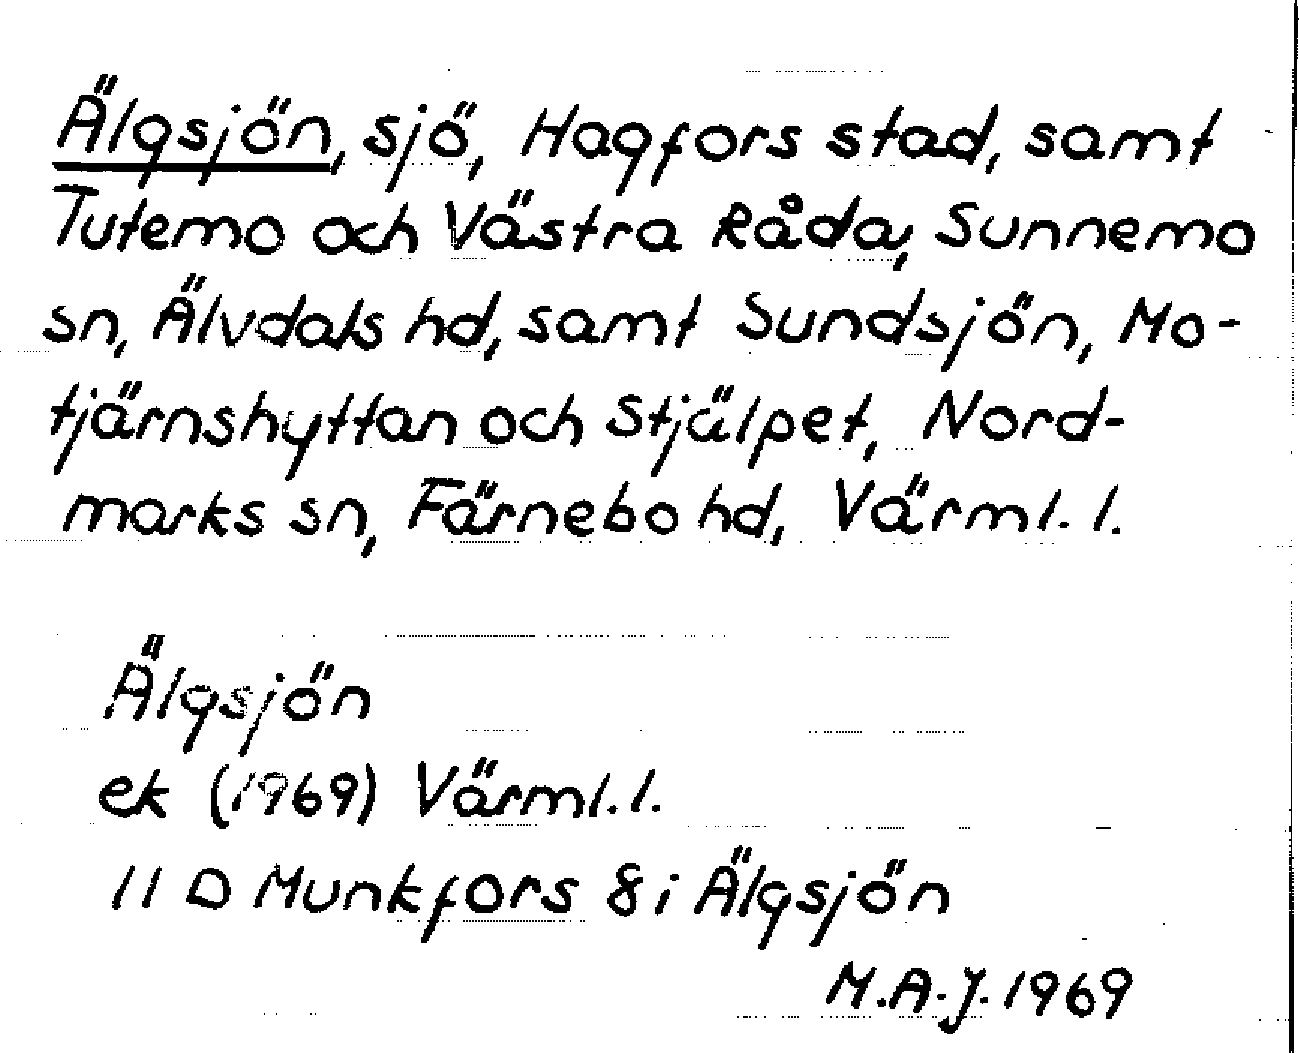 Älgsjön, sjö, Hagfors stad, samt
Tutemo och Västra Råda, Sunnemo
sn, Älvdals hd, samt Sundsjön, Mo-
tjärnshyttan och Stjälpet, Nord-
marks sn, Färnebo hd, Värml. l.
Älgsjön
ek (1969) Värml. l.
11 D Munkfors 8 i Älgsjön
M.A.J. 1969